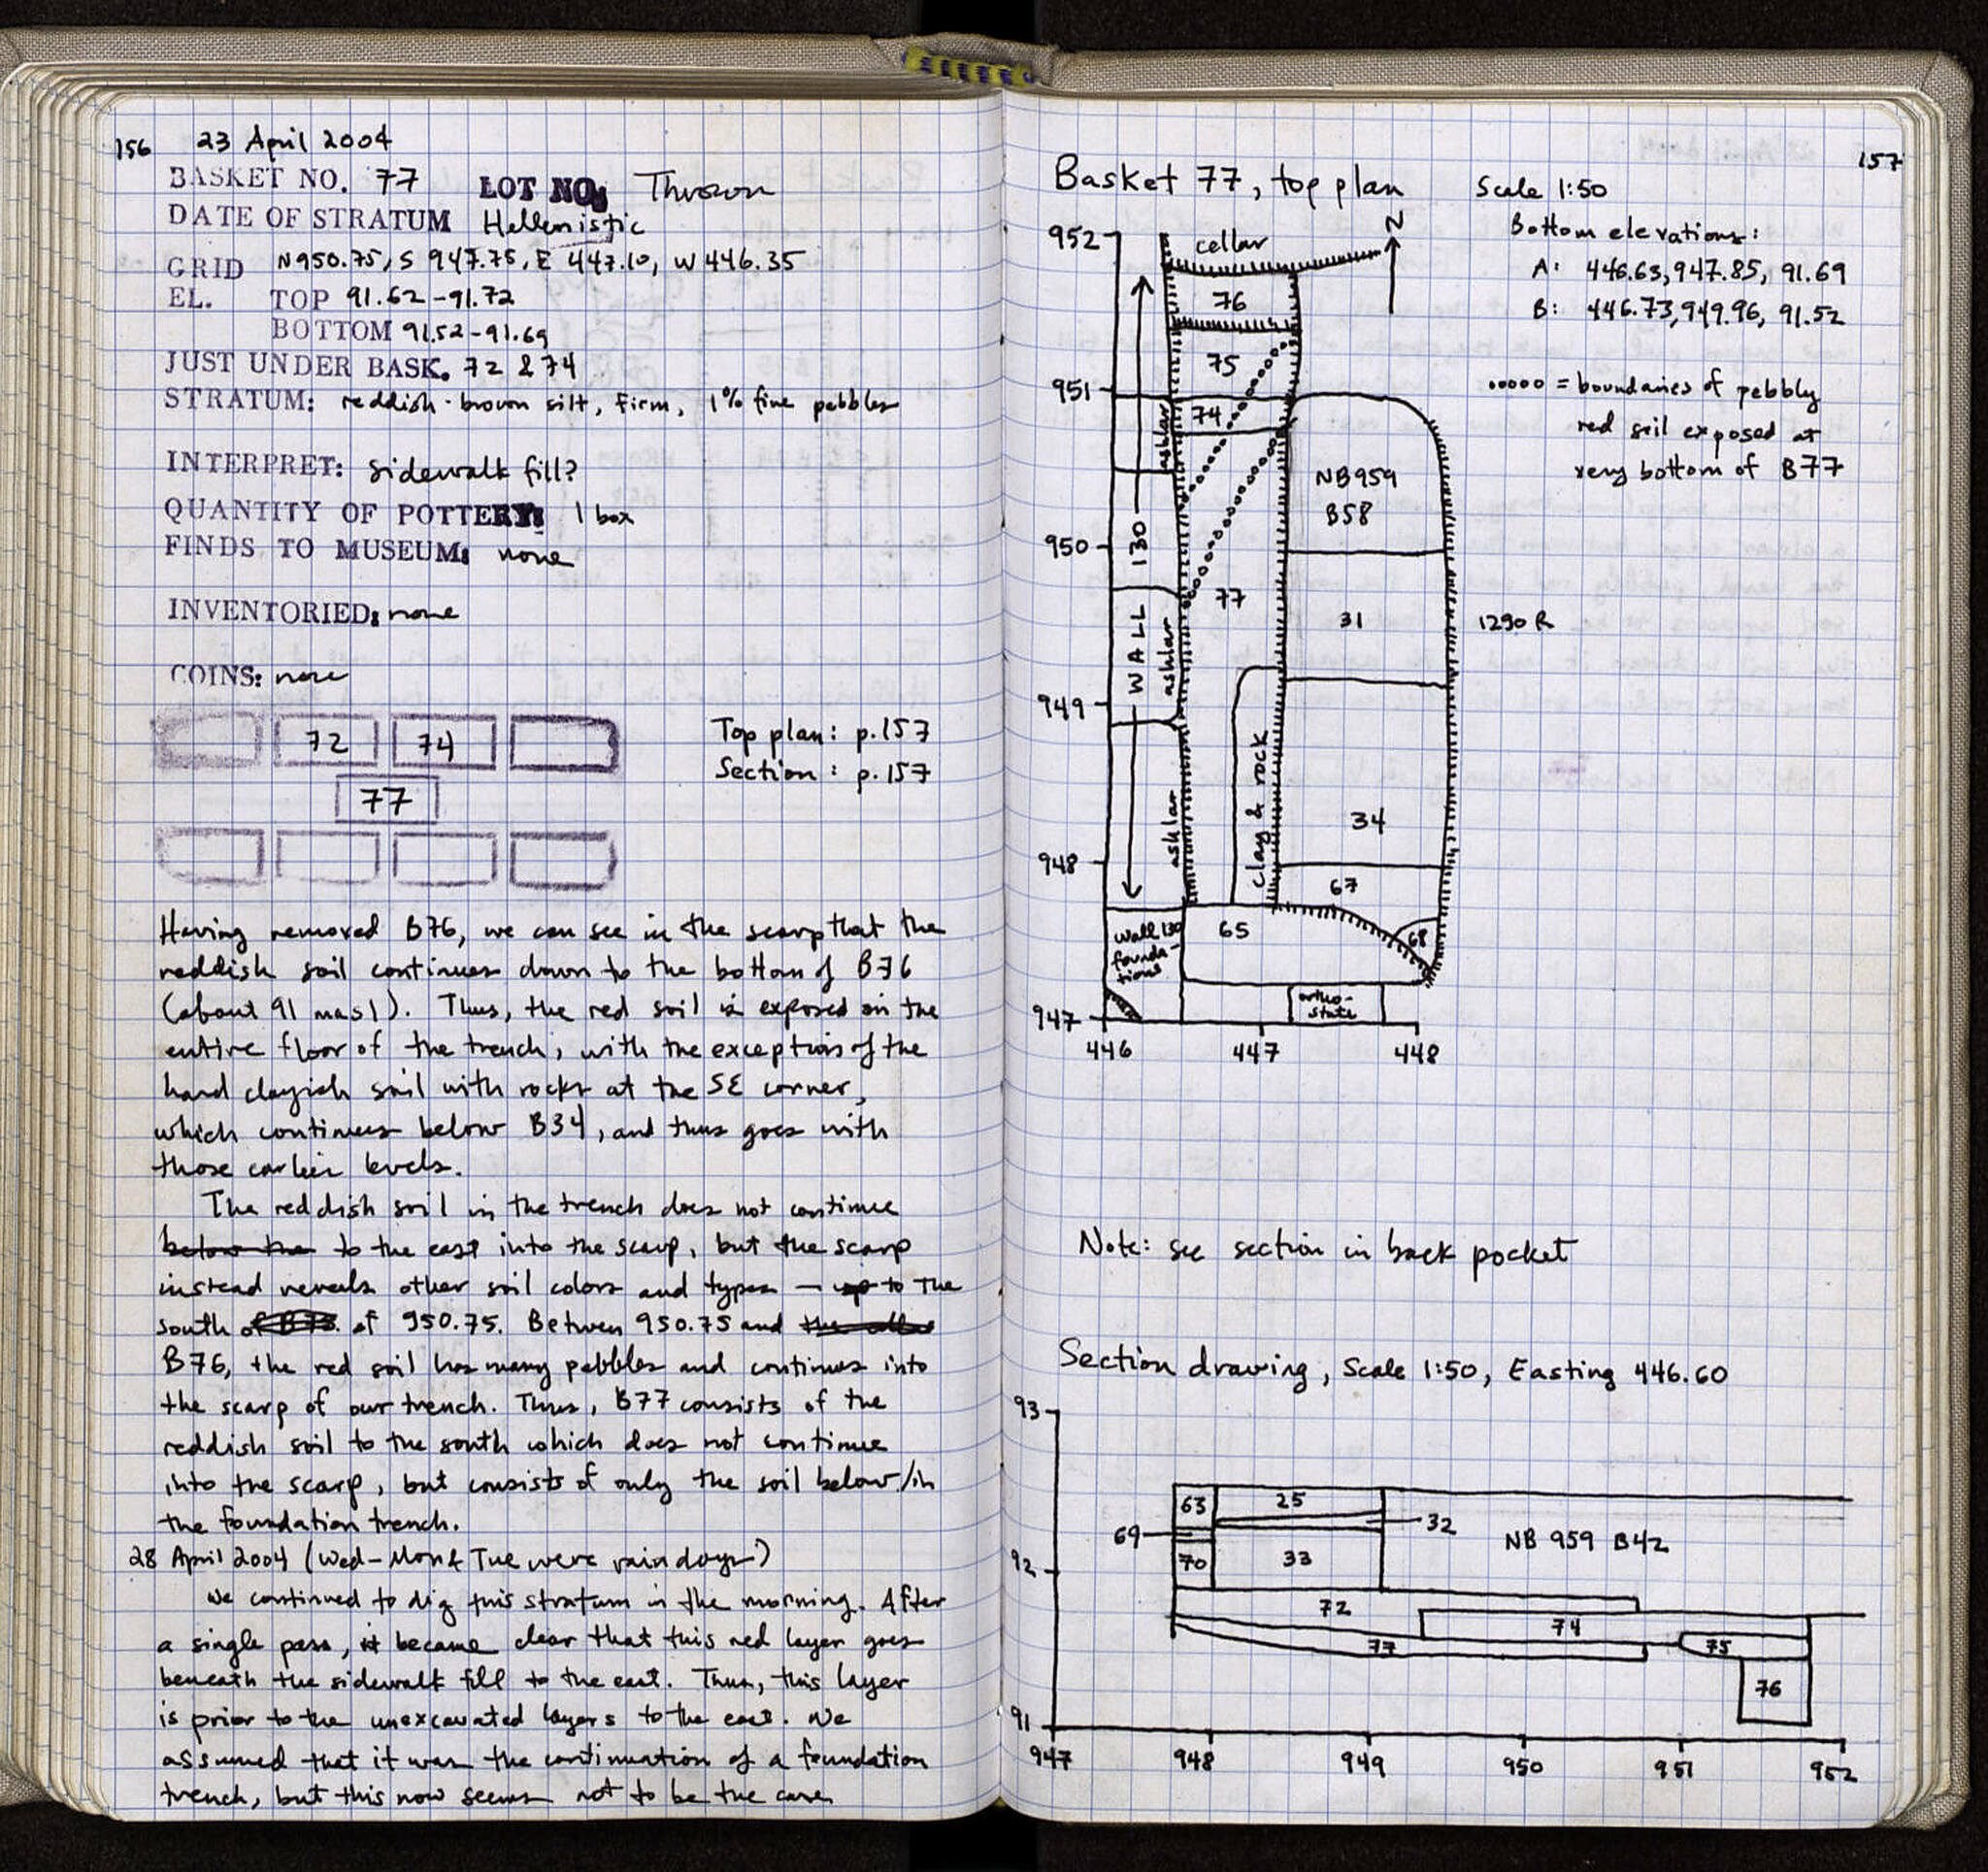 156 23 April 2004
BASKET NO. 77 LOT NO: Thrown
DATE OF STRATUM Hellenistic
GRID N950.75, S 947.75, E 447.10, W 446.35
EL. TOP 91.62-91.72
BOTTOM 91.52-91.69
JUST UNDER BASK. 72 & 74
STRATUM: reddish-brown silt, firm, 1% fine pebbles
INTERPRET: sidewalk fill?
QUANTITY OF POTTERY: 1 box
FINDS TO MUSEUM: none
INVENTORIED: none
COINS: none
72 74
77
Top plan: p.157
Section: p.157
Having removed B76, we can see in the scarp that the
reddish soil continues down to the bottom of B76
(about 91 masl). Thus, the red soil is exposed in the
entire floor of the trench, with the exception of the
hard clayish soil with rocks at the SE corner,
which continues below B34, and thus goes with
those earlier levels.
The reddish soil in the trench does not continue
below the to the east into the scarp, but the scarp
instead reveals other soil colors and types – up to the
south of B73. of 950.75. Between 950.75 and the cellar
B76, the red soil has many pebbles and continues into
the scarp of our trench. Thus, B77 consists of the
reddish soil to the south which does not continue
into the scarp, but consists of only the soil below/in
the foundation trench.
28 April 2004 (Wed-Mon & Tue were rain days)
We continued to dig this stratum in the morning. After
a single pass, it became clear that this red layer goes
beneath the sidewalk fill to the east. Thus, this layer
is prior to the unexcavated layers to the east. We
assumed that it was the continuation of a foundation
trench, but this now seems not to be the case.
157
Basket 77, top plan
Scale 1:50
Bottom elevations:
A: 446.63, 947.85, 91.69
B: 446.73, 949.96, 91.52
..... = boundaries of pebbly
red soil exposed at
very bottom of B77
N
952
cellar
76
75
951
74
ashlar
NB959
B58
950
WALL 130
77
31
1290 R
ashlar
949
clay & rock
34
ashlar
948
67
Wall 130
founda-
tions
65
68
ortho-
state
947
446 447 448
Note: see section in back pocket
Section drawing, Scale 1:50, Easting 446.60
93
63 25
69 32
NB 959 B42
92
70 33
72
74
77 75
76
91
947 948 949 950 951 952